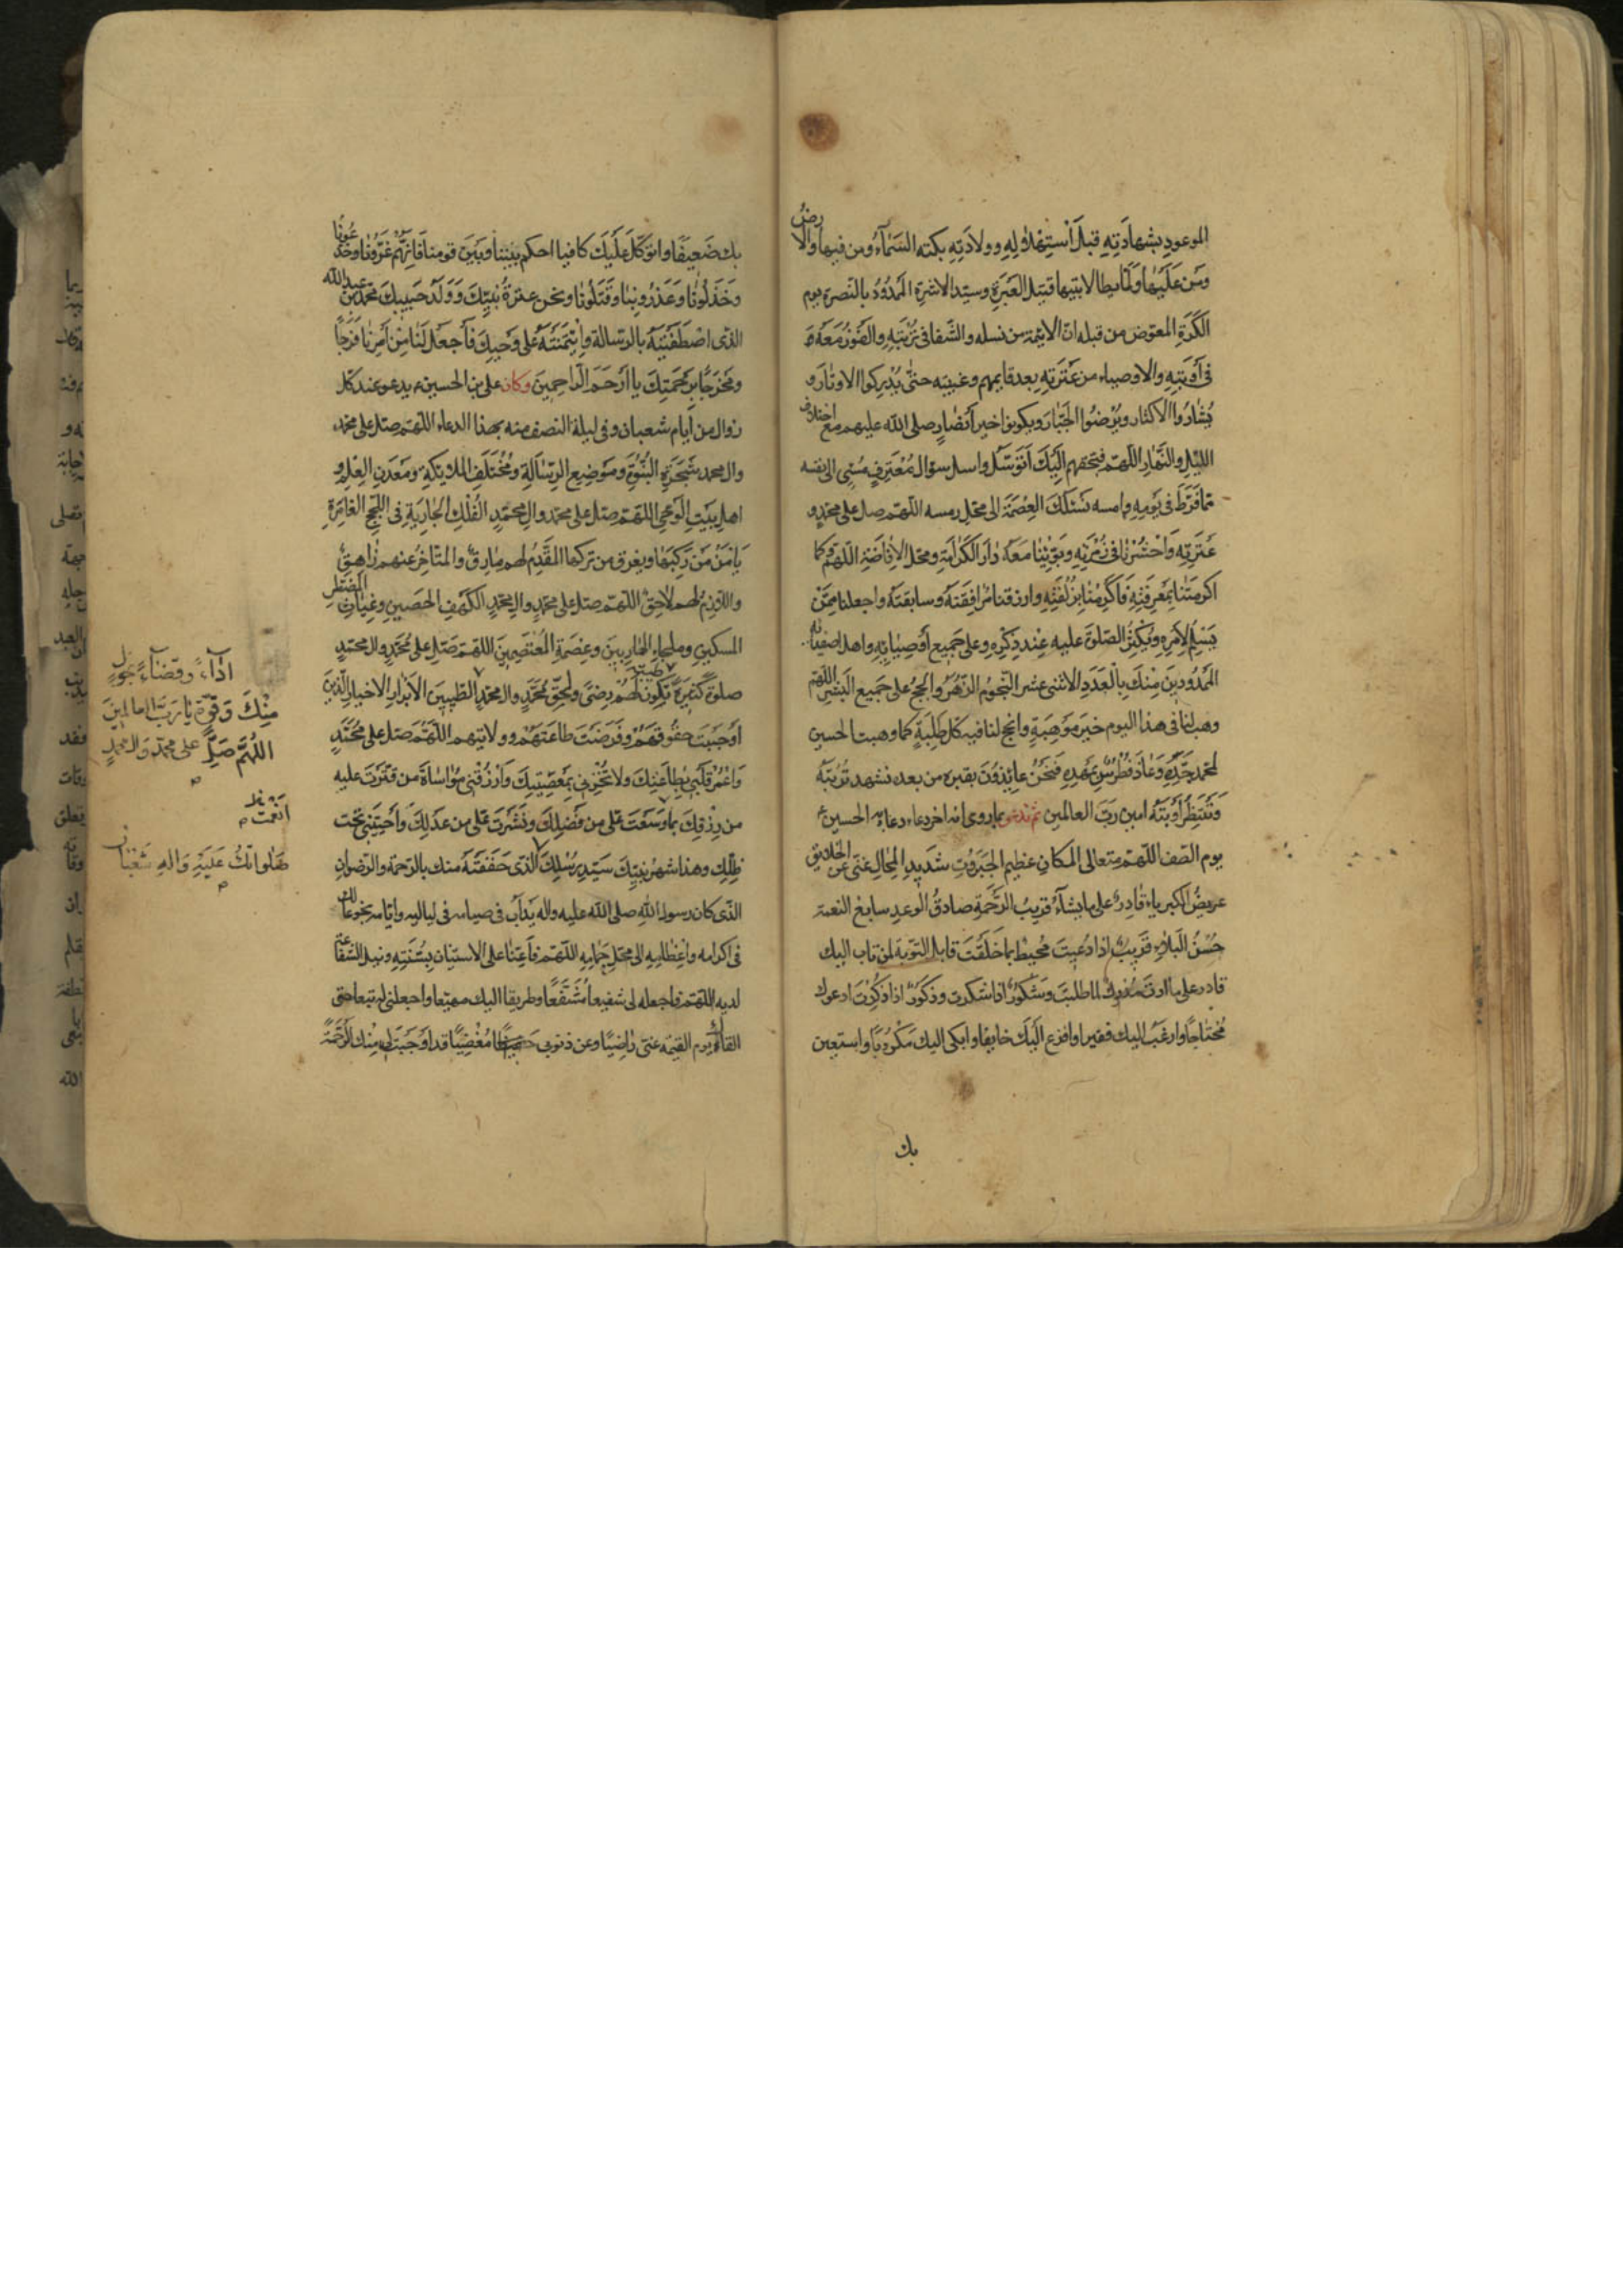 الموعود بشهادته قبل استهلاله وولادته بكته السماء ومن فيها والارض
ومن عليها ولما يطا لابتيها قتيل العبرة وسيد الاسرة الممدود بالنصرة يوم
الكرة المعوض من قبله ان الايمة من نسله والشفا فى تربته والفوز معه
فى أوبته والاوصياء من عترته بعد قايمهم وغيبته حتى يدركوا الاوتار و
يثاروا الاكثار ويرضوا الجبار ويكونوا خير أنصار صلى الله عليهم مع اختلاف
الليل والنهار اللهم فبحقهم اليك أتوسل واسل سؤال معترف مسئ الى نفسه
مما فرط فى يومه وامسه نسئلك العصمة الى محل رمسه اللهم صل على محمد و
عترته واحشرنا فى زمرته وبوئنا معه دار الكرامة ومحل الاقامة اللهم وكما
اكرمتنا بمعرفته فاكرمنا بزلفته وارزقنا مرافقته وسابقته واجعلنا ممن
يسلم لامره ويكثر الصلوة عليه عند ذكره وعلى جميع أوصيائه واهل اصفيائه
الممدودين منك بالعدد الاثنى عشر النجوم الزهر والحجج على جميع البشر اللهم
وهب لنا فى هذا اليوم خير موهبة وانجح لنا فيه كل طلبة كما وهبت الحسين
لمحمد جده وعاذ فطرس بمهده فنحن عايذون بقبره من بعده نشهد تربته
وننتظر أوبته امين رب العالمين ثم تدعو بما روى انه اخر دعاء دعا به الحسين ع
يوم الصف اللهم متعالى المكان عظيم الجبروت شديد المحال غنى عن الخلايق
عريض الكبرياء قادر على ما يشاء قريب الرحمة صادق الوعد سابغ النعمة
حسن البلاء قريب اذا دعيت محيط بما خلقت قابل التوبة لمن تاب اليك
قادر على ما اردت مدرك لما طلبت وشكور اذا شكرت وذكور اذا ذكرت ادعوك
محتاجا وارغب اليك فقيرا وافزع اليك خايفا وابكى اليك مكروبا واستعين
بك
بك ضعيفا واتوكل عليك كافيا احكم بيننا وبين قومنا فانهم غرونا وخدعونا
وخذلونا وغدروا بنا وقتلونا ونحن عترة نبيك وولد حبيبك محمد بن عبد الله
الذى اصطفيته بالرسالة وائتمنته على وحيك فاجعل لنا من أمرنا فرجا
ومخرجا برحمتك يا ارحم الراحمين وكان على بن الحسين ع يدعو عند كل
زوال من أيام شعبان وفى ليلة النصف منه بهذا الدعاء اللهم صل على محمد
وال محمد شجرة النبوة وموضع الرسالة ومختلف الملايكة ومعدن العلم و
اهل بيت الوحى اللهم صل على محمد وال محمد الفلك الجارية فى اللجج الغامرة
يامن من ركبها ويغرق من تركها المتقدم لهم مارق والمتاخر عنهم زاهق
واللازم لهم لاحق اللهم صل على محمد وال محمد الكهف الحصين وغياث المضطر
المسكين وملجاء الهاربين وعصمة المعتصمين اللهم صل على محمد وال محمد
صلوة كثيرة طيبة تكون لهم رضى ولحق محمد وال محمد الطيبين الأبرار الاخيار الذين
أوجبت حقوقهم وفرضت طاعتهم وولايتهم اللهم صل على محمد
واعمر قلبى بطاعتك ولا تخزنى بمعصيتك وارزقنى مواساة من قترت عليه
من رزقك بما وسعت على من فضلك ونشرت على من عدلك وأحييتنى تحت
ظلك وهذا شهر نبيك سيد رسلك الذى حففته منك بالرحمة والرضوان
الذى كان رسول الله صلى الله عليه واله يدأب فى صيامه فى لياليه وأيامه بخوعا لك
فى اكرامه واعظامه الى محل حمامه اللهم فأعنا على الاستنان بسنته ونيل الشفاعة
لديه اللهم فاجعله لى شفيعا مشفعا وطريقا اليك مهيعا واجعلنى له تبعا حتى
القاك يوم القيمة عنى راضيا وعن ذنوبى مغضيا قد اوجبت لى منك الرحمة
اداء وقضاء بحول
منك وقوة يا رب العالمين
اللهم صل على محمد وال محمد
م
أنعمت م
صلواتك عليه واله شعبان
م